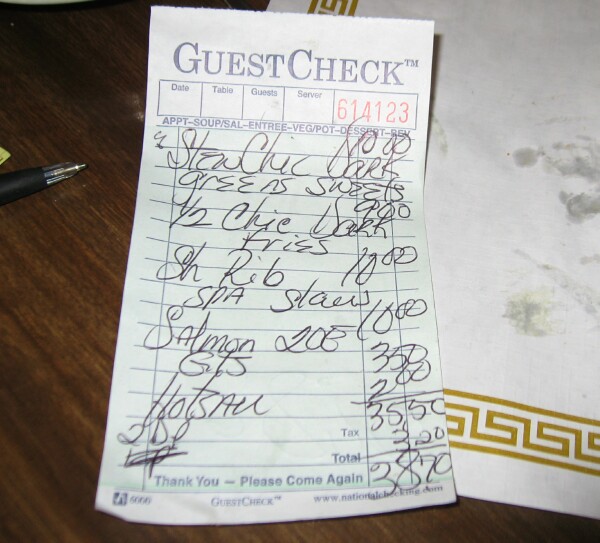 GUESTCHECK™
Date Table Guests Server
614123
APPT-SOUP/SAL-ENTREE-VEG/POT-DESSERT-BEV
Stew Chic Dark 10.00
greens sweets
1/2 Chic Dark 9.00
Fries
Sh Rib 10.00
SPA slaw
Salmon 10.00
350
200
35.50
Tax 3.20
Total 38.70
Thank You — Please Come Again
6000 GUESTCHECK™ www.nationalchecking.com